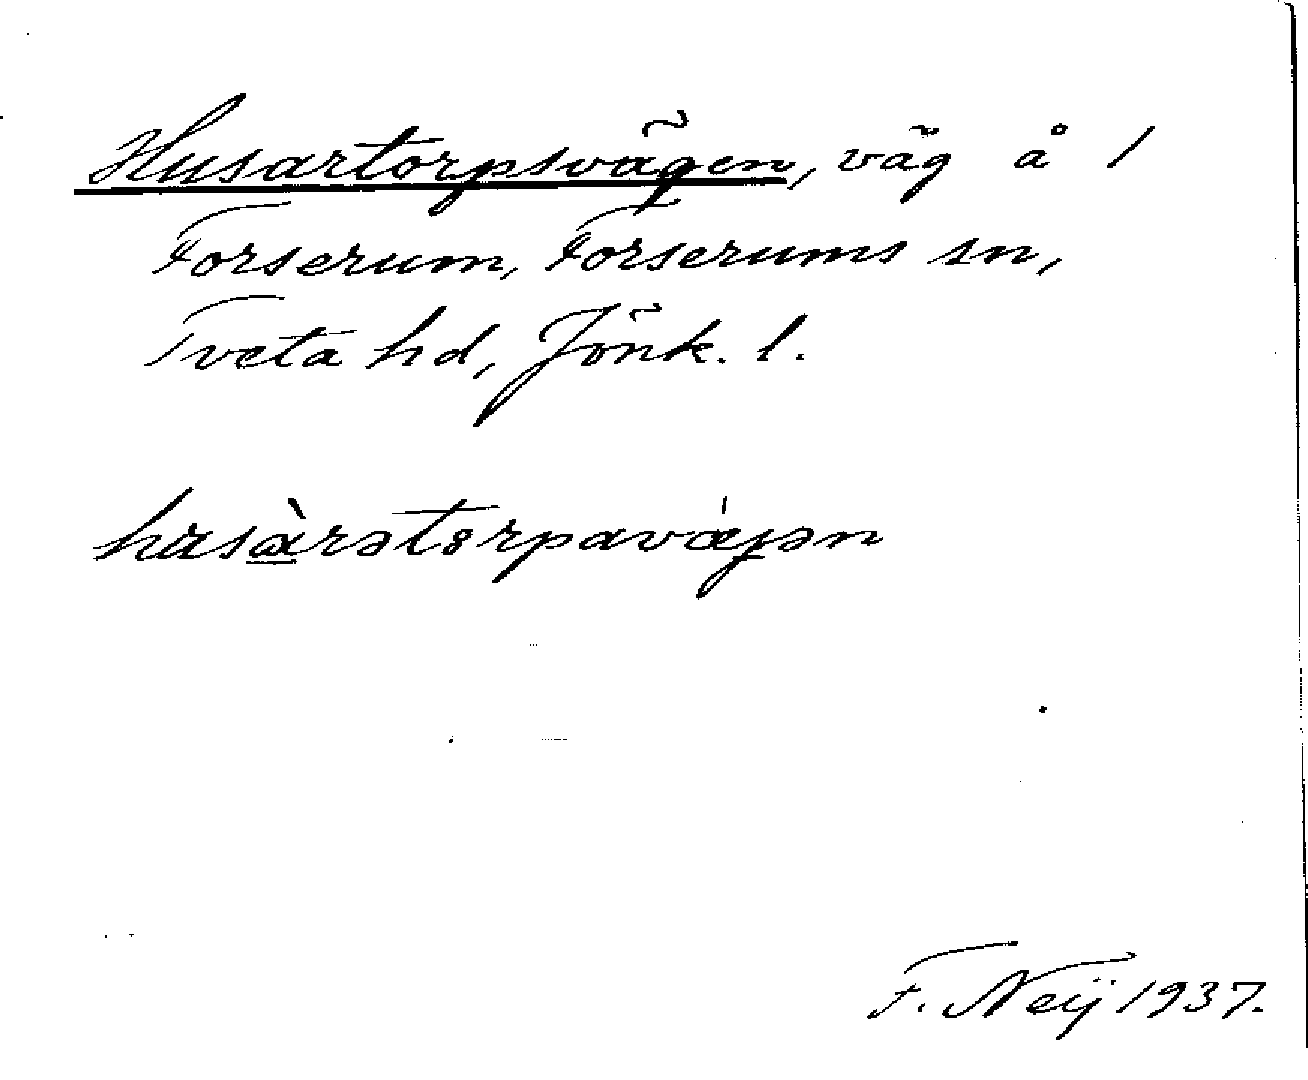 Husartorpsvägen, väg å 1
Forserum, Forserums sn,
Tveta hd, Jönk. l.
husàrətɵrpavǽjən
F. Neij 1937.